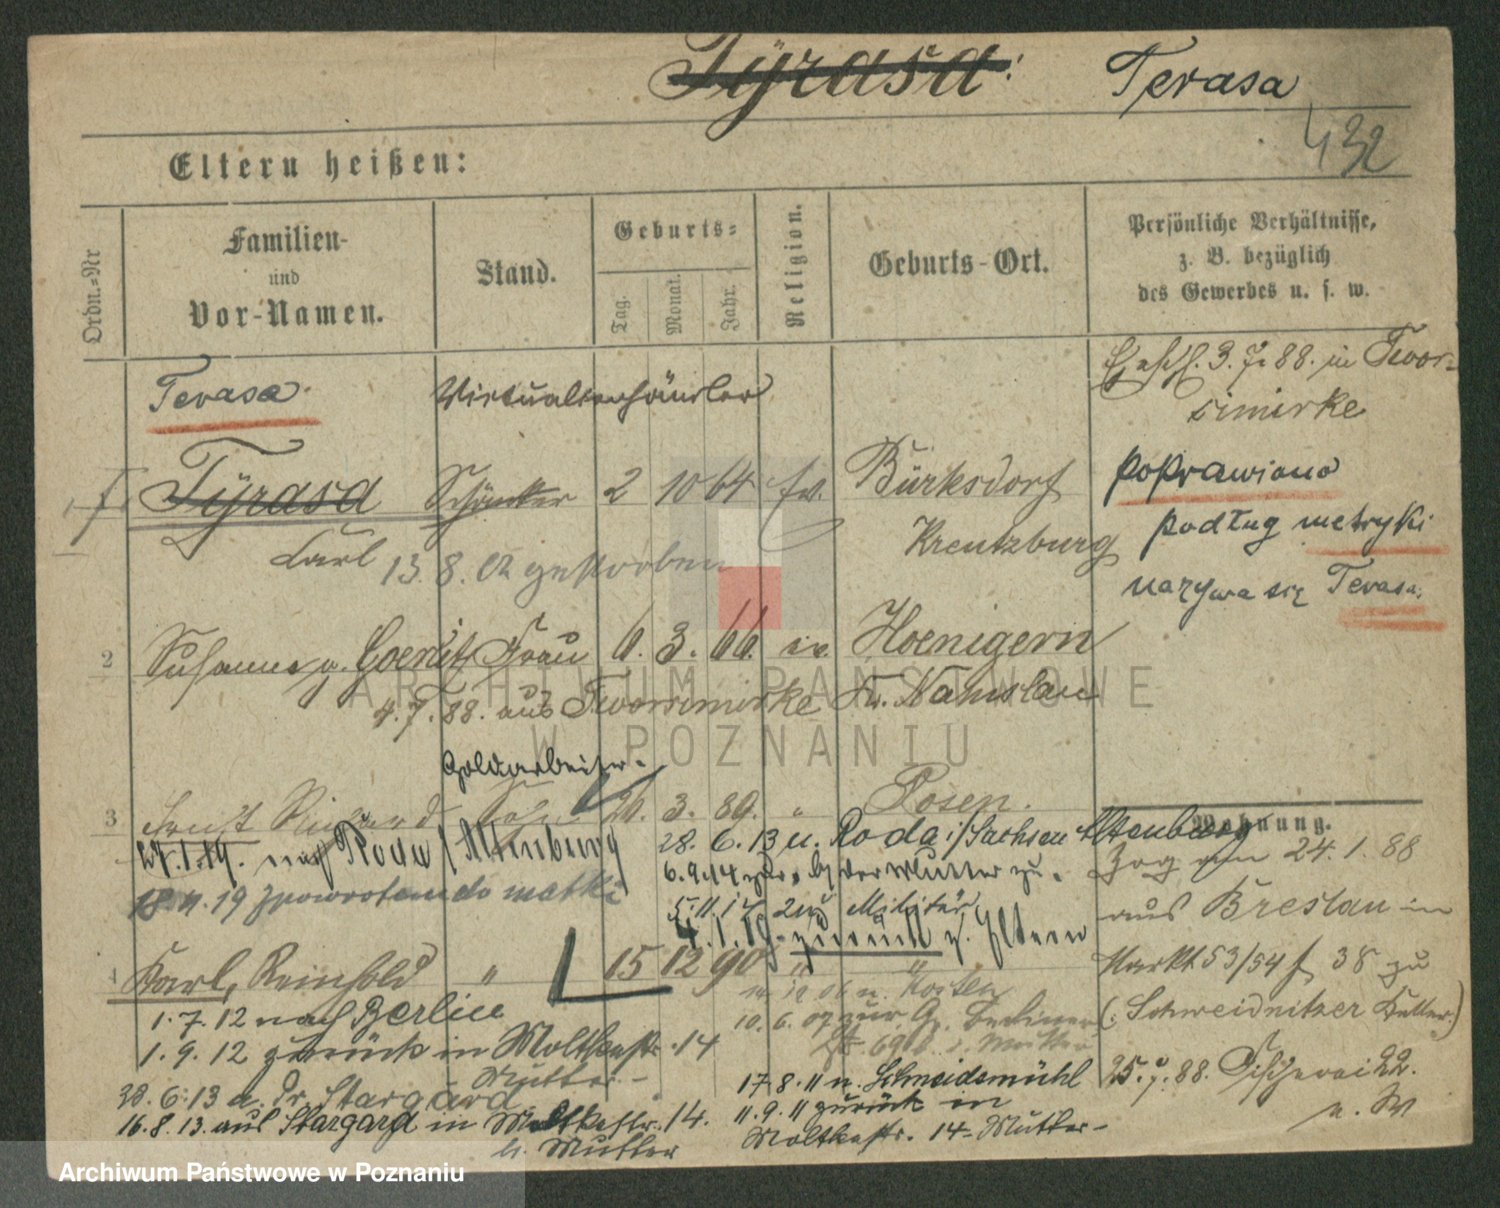 Tÿrasa. Terasa
432
Eltern heißen:
Ordn.=Nr
Familien-
und
Vor-Namen.
Stand.
Geburts=
Tag.
Monat.
Jahr.
Religion.
Geburts-Ort.
Persönliche Verhältnisse,
z. B. bezüglich
des Gewerbes u. s. w.
Terasa. Victualienhändler
3. 7. 88. in Twor=
simirke
Tÿrasa Schänker 2 10 64 ev. Bürksdorf
Carl Kreutzburg
13. 8. 02 gestorben
poprawiono
podług metryki
nazywa się Terasa.
2 Susanna g. Goerlit Frau 6. 3. 66. ev. Hoenigern
4. 7. 88. aus Tworsimirke Kr. Namslau
ARCHIWUM PAŃSTWOWE
W POZNANIU
Goldarbeiter.
3 Ernst Richard Sohn 26. 3. 89. " Posen.
27.1.19. nach Roda / Altenburg
28. 6. 13 n. Roda i/Sachsen Altenburg
6.9.14 zur Mutter zu.
18.4.19 z powrotem do matki
5.11.14 zum Militär
4.1.19. zurück z. Eltern
Wohnung.
Zog am 24. 1. 88
aus Breslau in
Markt 53/54 38 zu
(: Schweidnitzer Keller.)
25. 7. 88. Fischerei 22.
n. W
4 Karl, Reinhold " 15 12 90 " "
1. 7. 12 nach Berlin
1. 9. 12 zurück in Moltkestr. 14
Mutter -
28. 6. 13 n. Pr. Stargard
16. 8. 13. aus Stargard in Moltkestr. 14.
b. Mutter
06 n. Kosten
10. 6. 07 zur Berliner
str. 69 b. s. Mutter
17. 8. 11 n. Schneidemühl
11. 9. 11 zurück in
Moltkestr. 14 - Mutter -
Archiwum Państwowe w Poznaniu